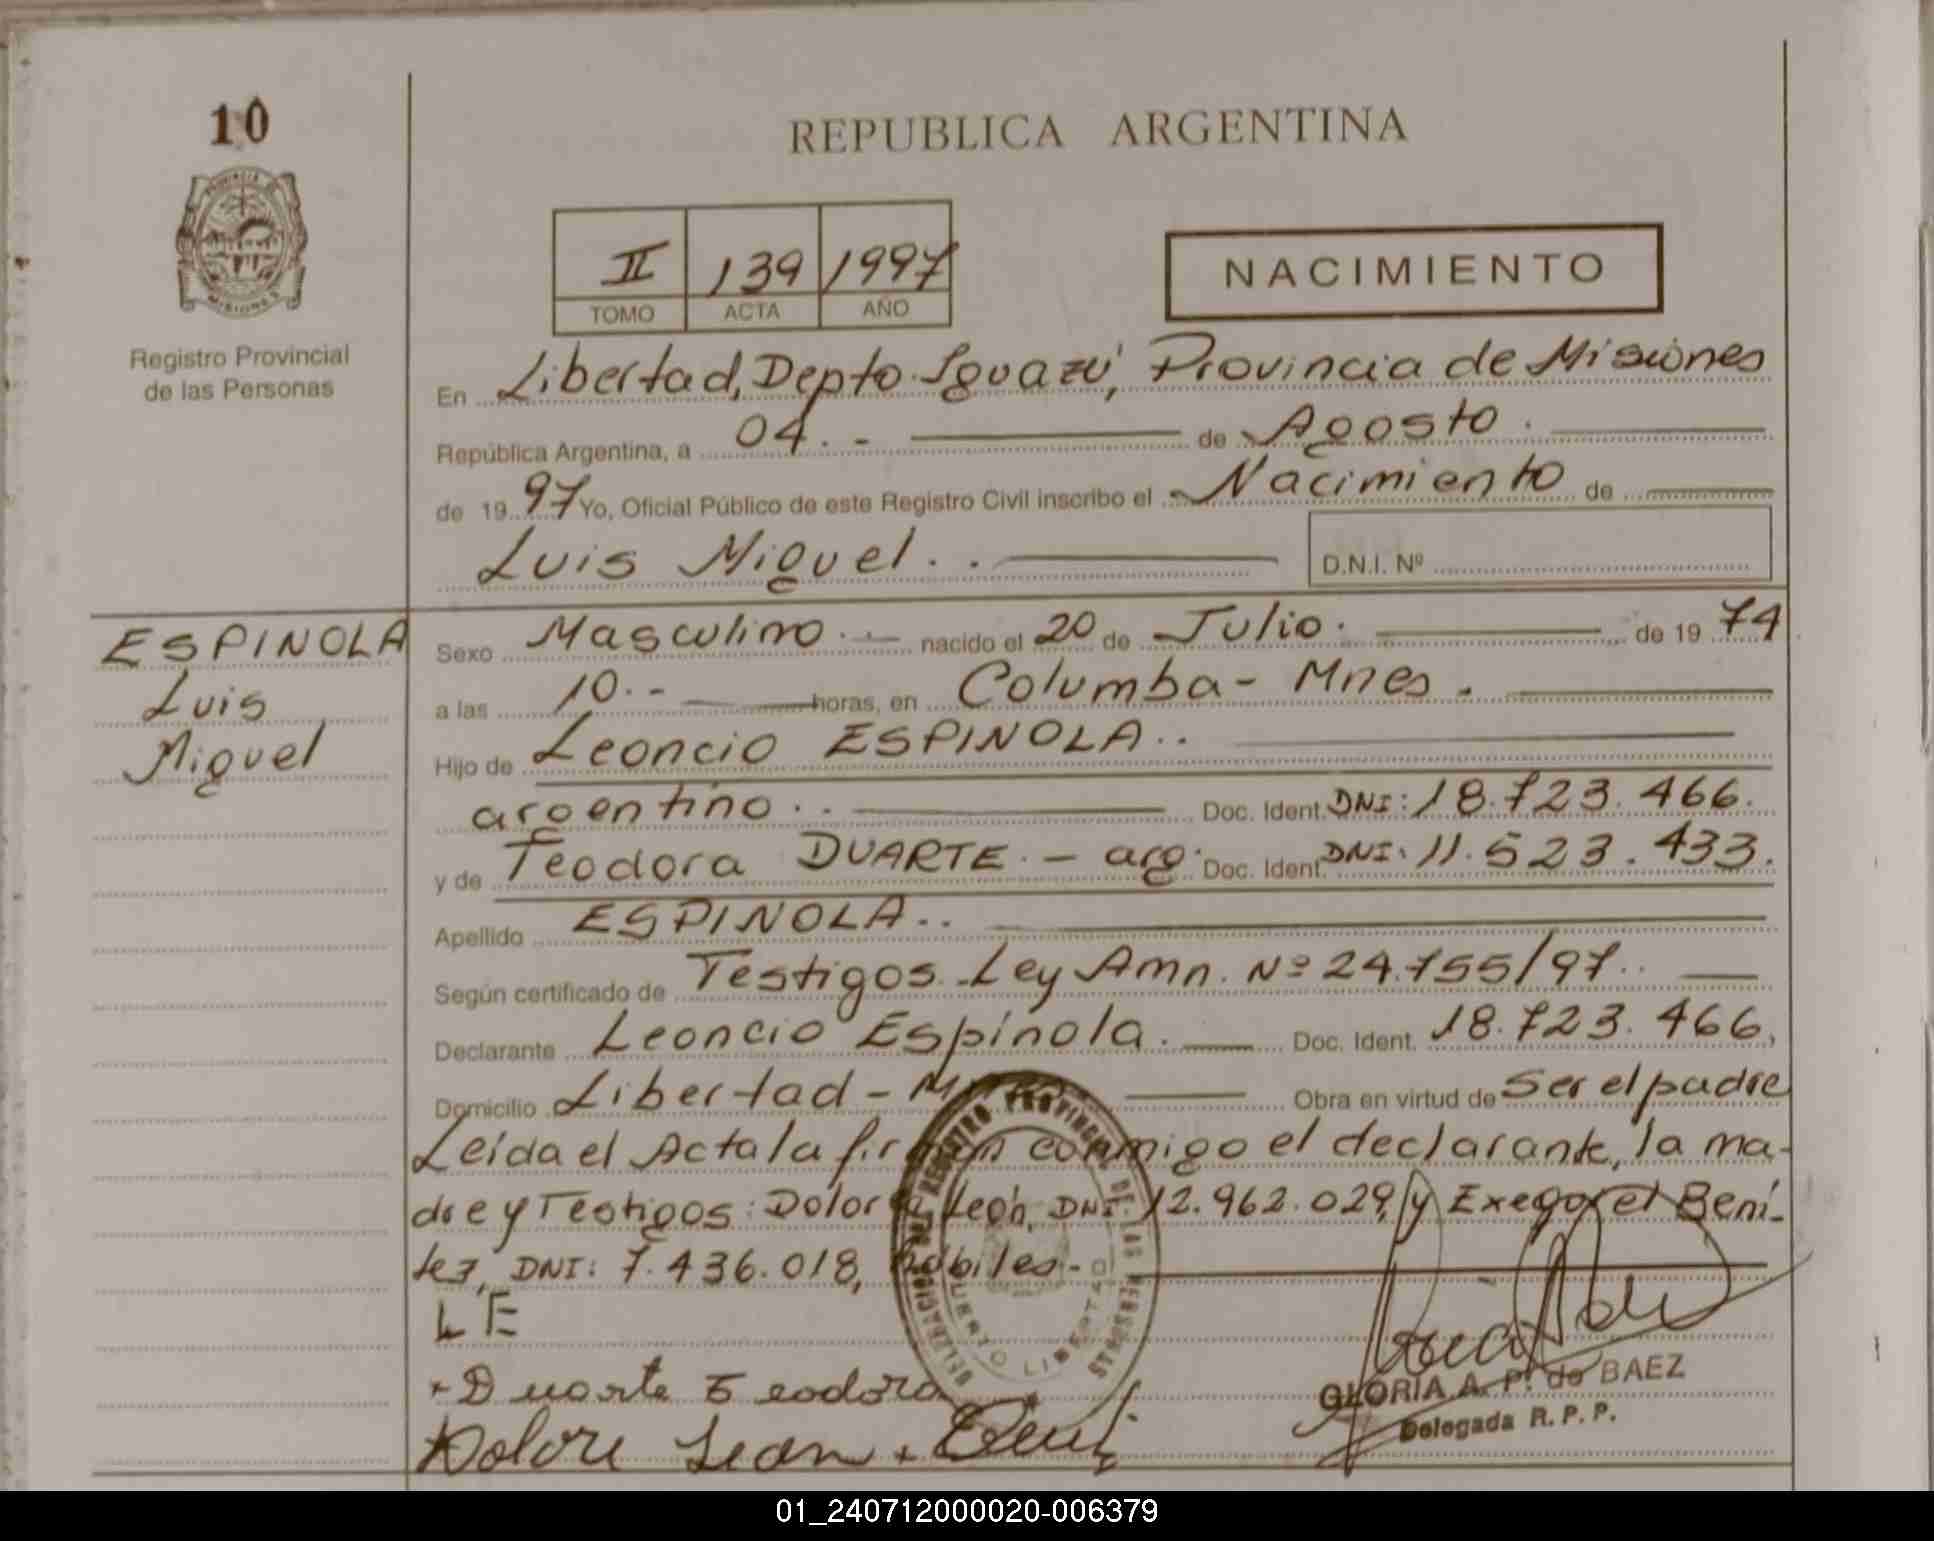 10
PROVINCIA DE
MISIONES
Registro Provincial
de las Personas
REPUBLICA ARGENTINA
II 139 1997
TOMO ACTA AÑO
NACIMIENTO
En Libertad, Depto. Iguazú, Provincia de Misiones
República Argentina, a 04.- de Agosto.
de 19 97 Yo, Oficial Público de este Registro Civil inscribo el Nacimiento de
Luis Miguel.. D.N.I. Nº
ESPINOLA
Luis
Miguel
Sexo Masculino.- nacido el 20 de Julio. de 19 74
a las 10.- horas, en Columba - Mnes.
Hijo de Leoncio ESPINOLA..
argentino.. Doc. Ident. DNI: 18.723.466.
y de Teodora DUARTE.- arg. Doc. Ident. DNI: 11.523.433.
Apellido ESPINOLA..
Según certificado de Testigos Ley Amn. Nº 24.755/97..
Declarante Leoncio Espínola. Doc. Ident. 18.723.466,
Domicilio Libertad - Obra en virtud de Ser el padre
Leída el Acta la firman conmigo el declarante, la ma-
dre y Testigos: Dolore León, DNI: 12.962.029, y Exegorel Bení-
tez, DNI: 7.436.018, habiles.-
DELEGACION DEL REGISTRO PROVINCIAL DE LAS PERSONAS
PUERTO LIBERTAD
LE
Duarte Teodora
Dolore Lean
GLORIA A. P. de BAEZ
Delegada R. P. P.
01_240712000020-006379